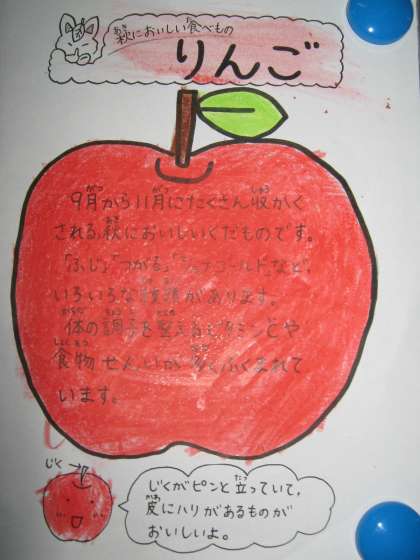 秋においしい食べもの
りんご
9月から11月にたくさん収かく
される秋においしいくだものです。
「ふじ」「つがる」「ジョナゴールド」など、
いろいろな種類があります。
体の調子を整えるビタミンCや
食物せんいが多くふくまれて
います。
じく
じくがピンと立っていて、
皮にハリがあるものが
おいしいよ。